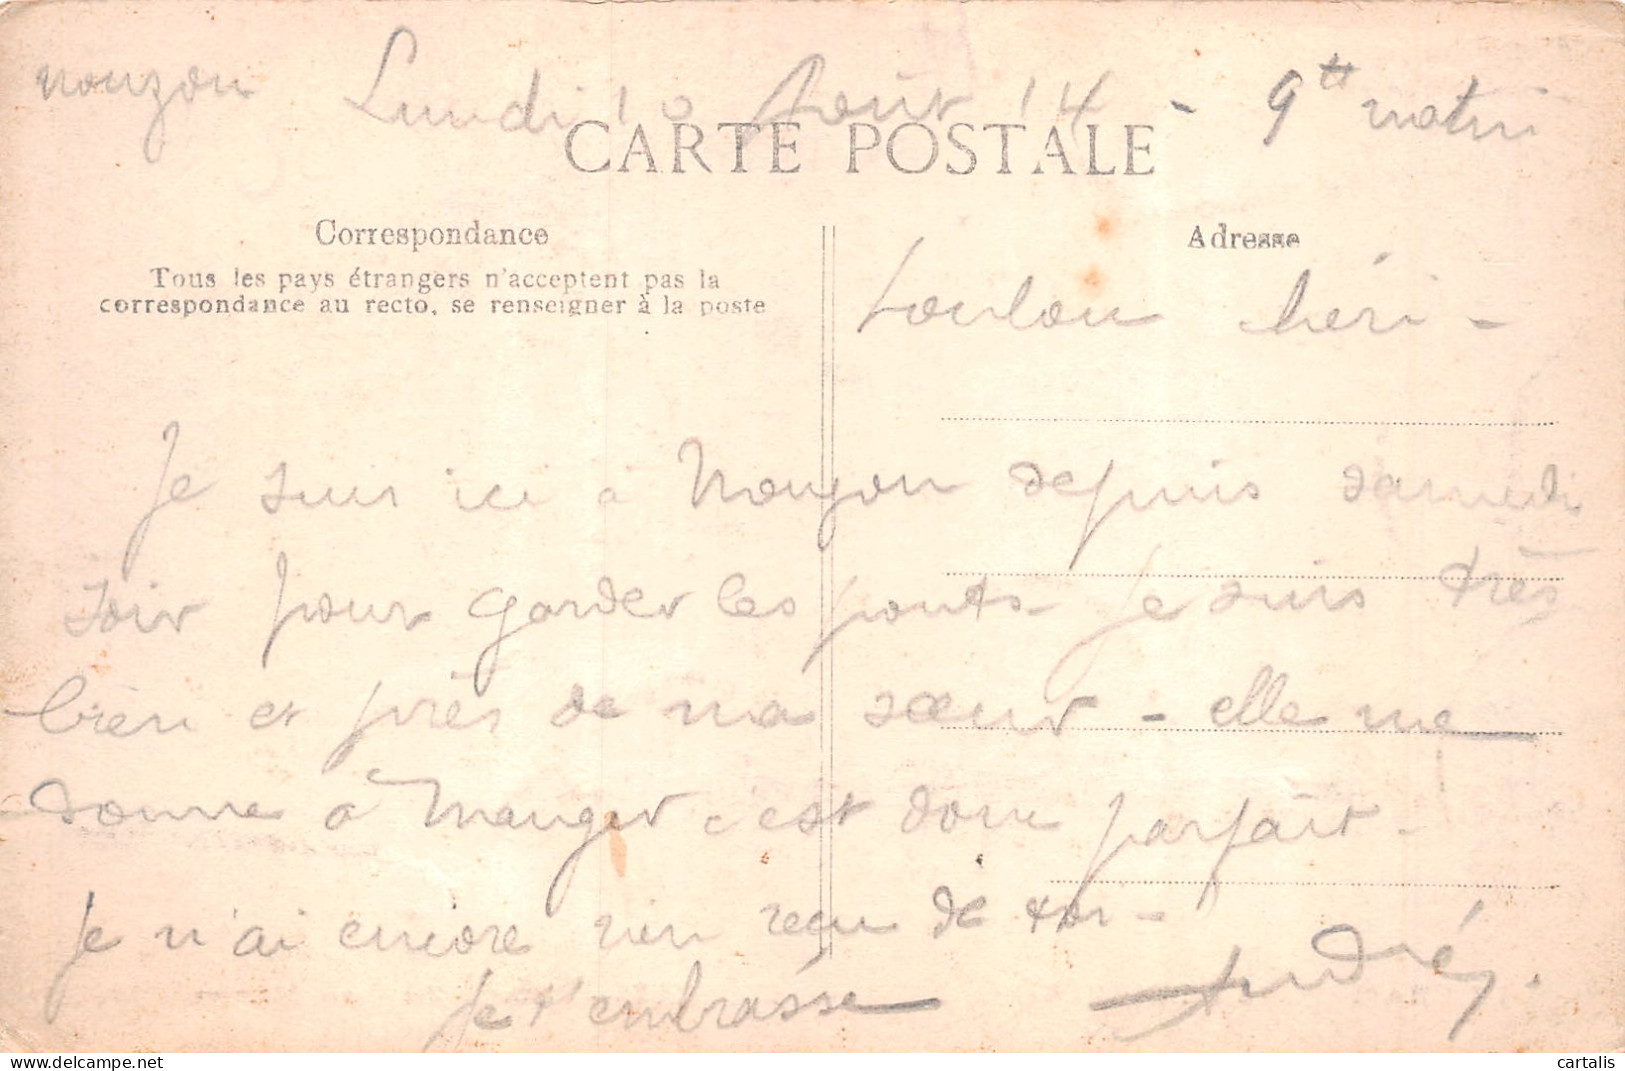 Nouzon Lundi 10 Août 14 - 9 matin
CARTE POSTALE
Correspondance
Adresse
Tous les pays étrangers n'acceptent pas la
correspondance au recto, se renseigner à la poste
Loulou chéri -
Je suis ici à Nouzon depuis samedi
soir pour garder les ponts - Je suis très
bien et près de ma sœur - elle me
donne à manger c'est donc parfait -
Je n'ai encore rien reçu de toi -
Je t'embrasse André.
cartalis